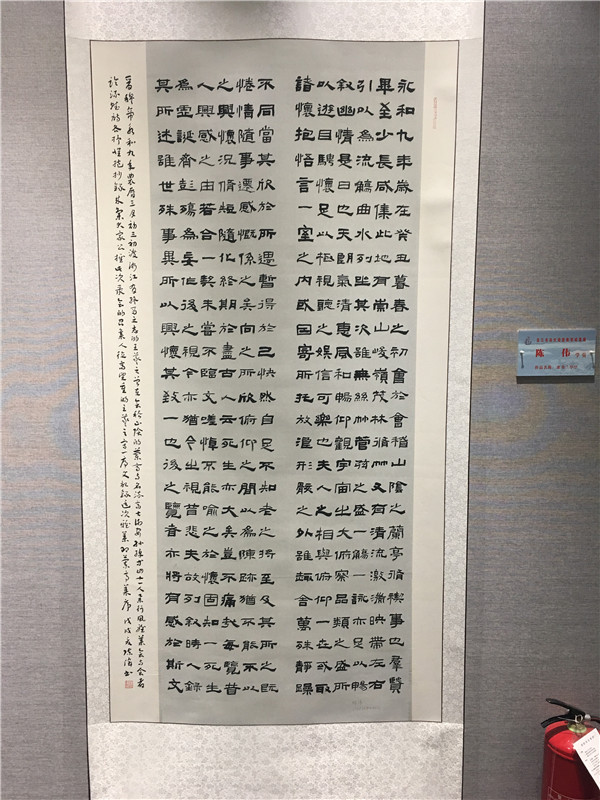 永和九年歲在癸丑暮春之初會於會稽山陰之蘭亭脩禊事也羣賢
畢至少長咸集此地有崇山峻嶺茂林脩竹又有清流激湍映帶左右
引以為流觴曲水列坐其次雖無絲竹管弦之盛一觴一詠亦足以暢
敘幽情是日也天朗氣清惠風和暢仰觀宇宙之大俯察品類之盛所
以遊目騁懷足以極視聽之娛信可樂也夫人之相與俯仰一世或取
諸懷抱悟言一室之內或因寄所託放浪形骸之外雖趣舍萬殊靜躁
不同當其欣於所遇暫得於己快然自足不知老之將至及其所之既
惓情隨事遷感慨係之矣向之所欣俯仰之間以為陳跡猶不能不以
之興懷況脩短隨化終期於盡古人云死生亦大矣豈不痛哉每覽昔
人興感之由若合一契未嘗不臨文嗟悼不能喻之於懷固知一死生
為虛誕齊彭殤為妄作後之視今亦猶今之視昔悲夫故列敘時人錄
其所述雖世殊事異所以興懷其致一也後之覽者亦將有感於斯文
陈 伟